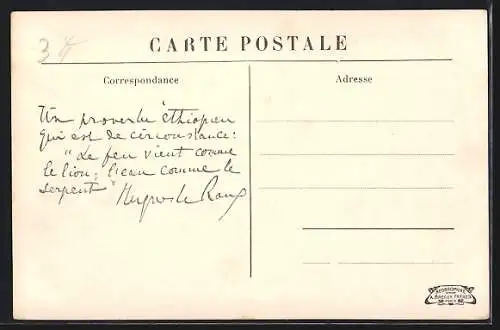 34
CARTE POSTALE
Correspondance
Adresse
Un proverbe éthiopien
qui est de circonstance:
"Le feu vient comme
le lion; l'eau comme le
serpent"
Hugues le Roux